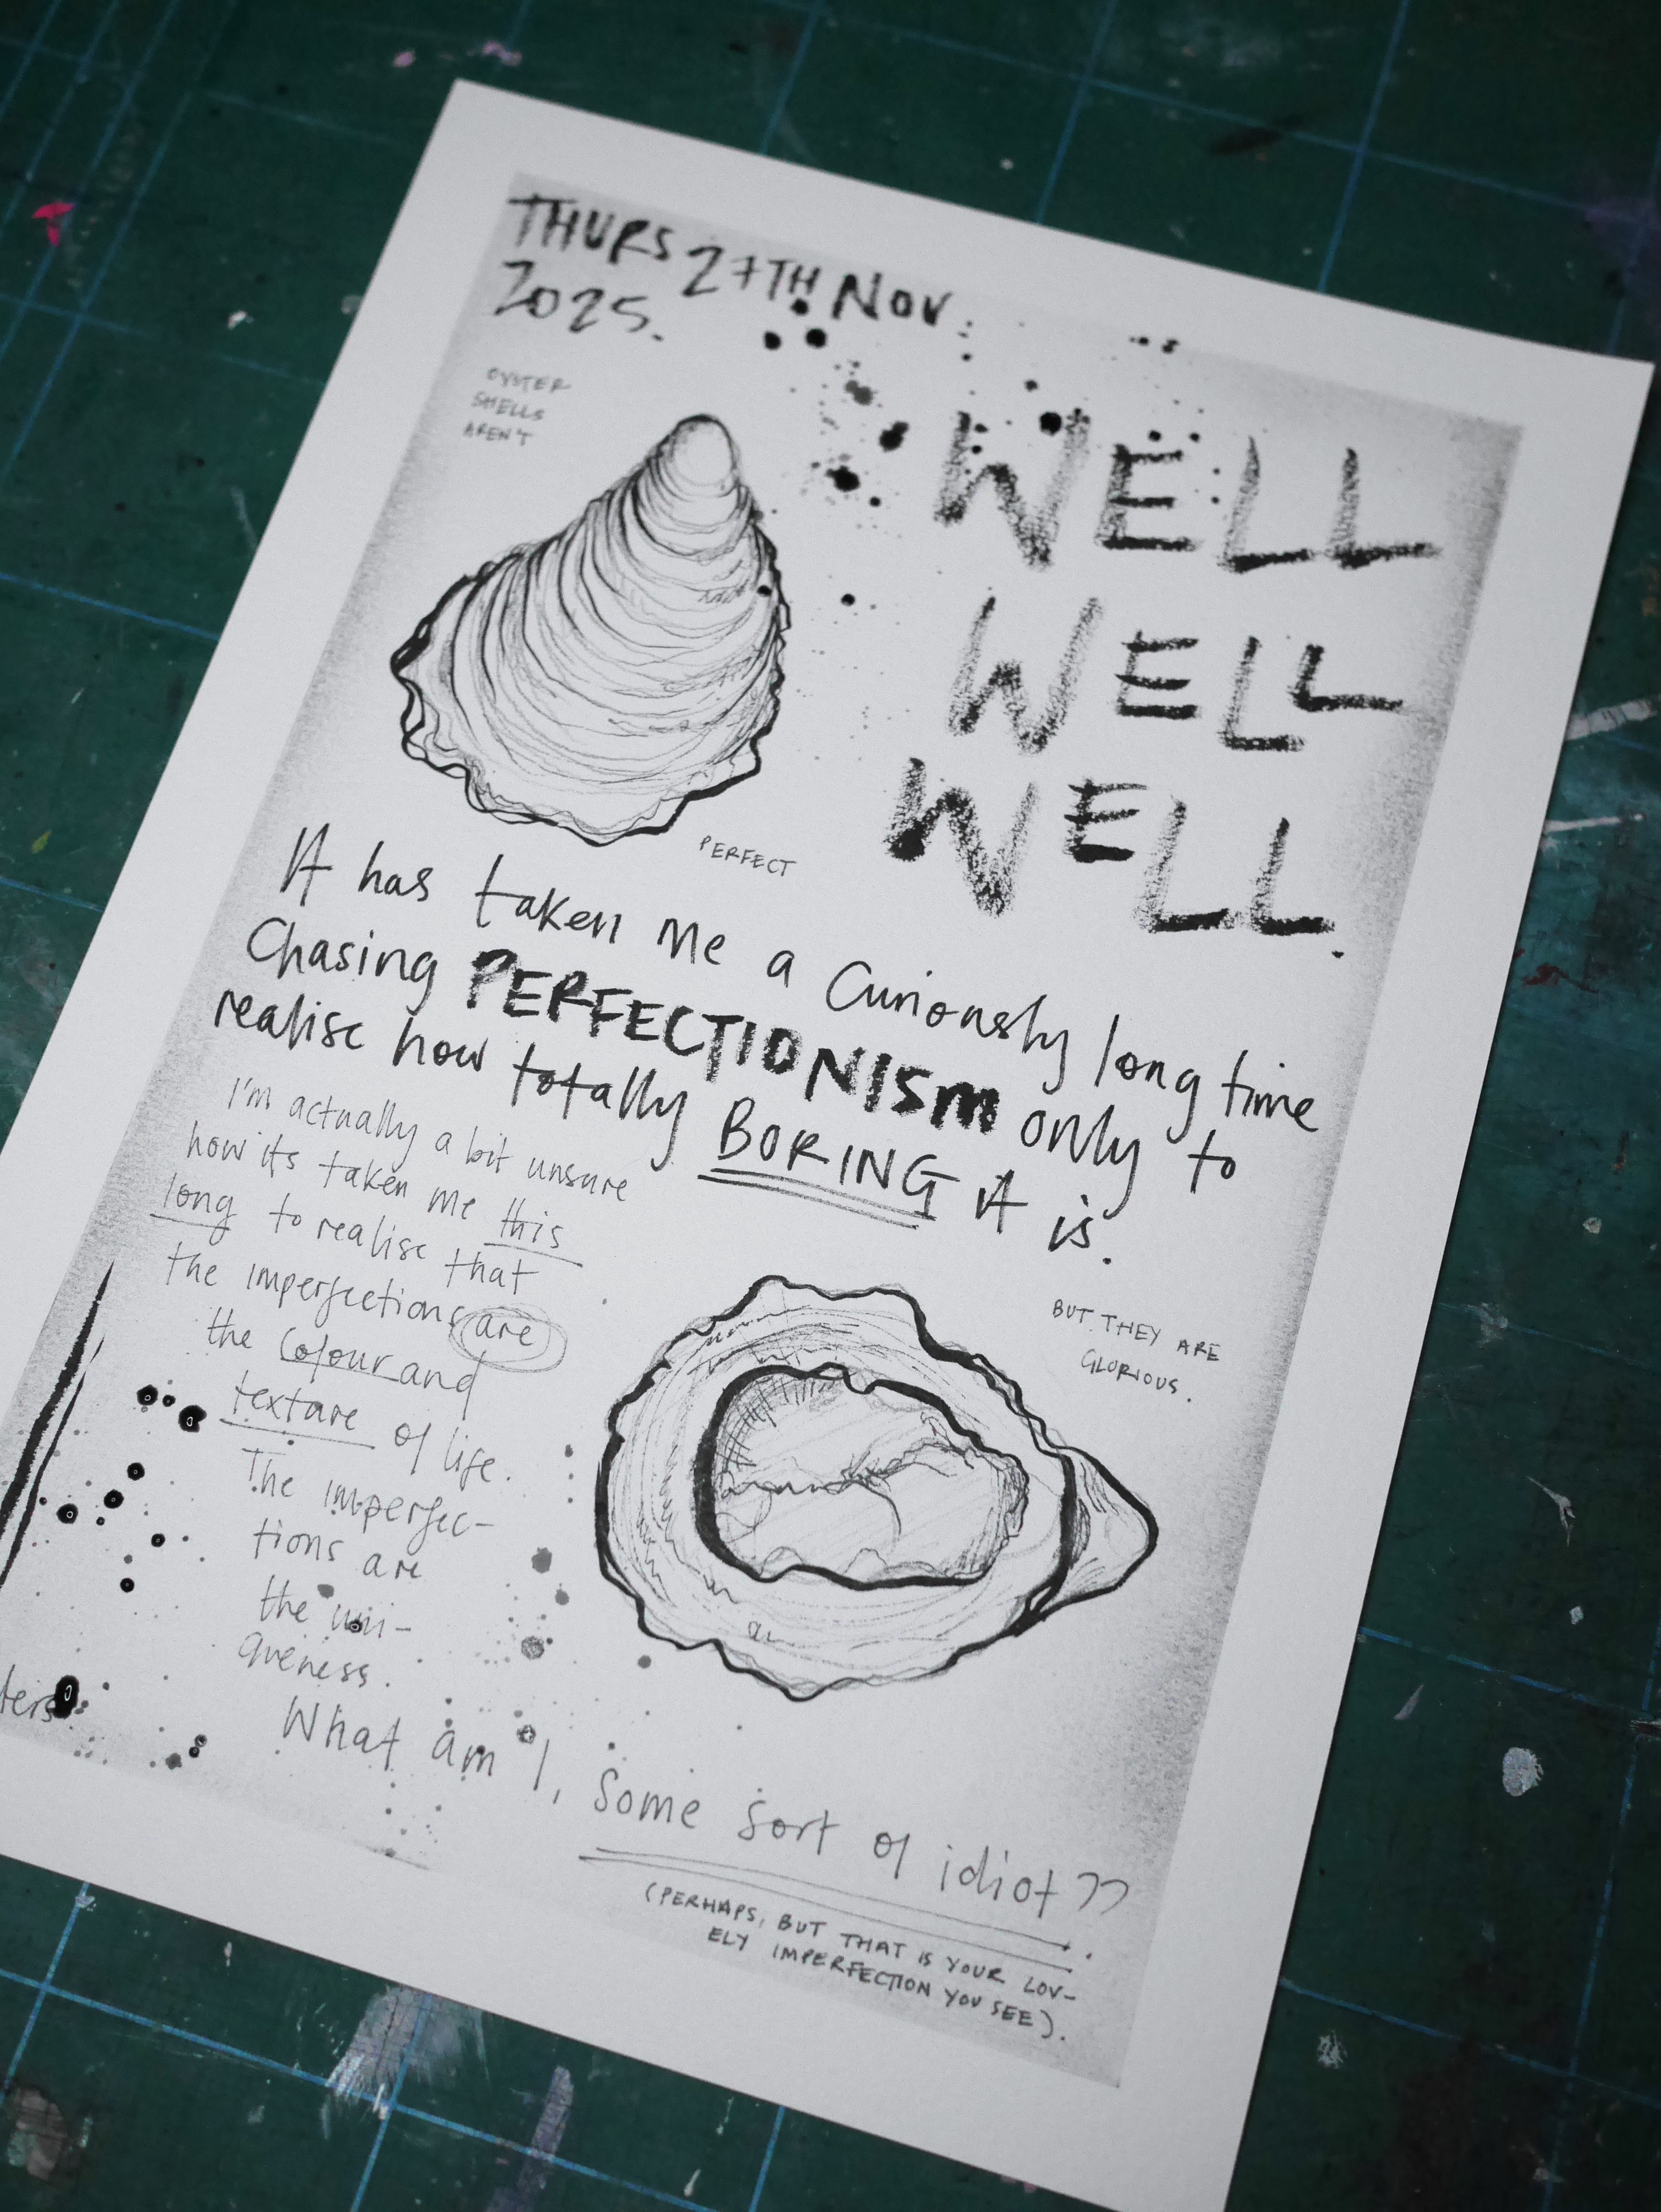 THURS 27TH NOV.
2025.
OYSTER
SHELLS
AREN'T
PERFECT
WELL
WELL
WELL.
It has taken me a curiously long time
Chasing PERFECTIONISM only to
realise how totally BORING it is.
I'm actually a bit unsure
how its taken me this
long to realise that
the imperfections are
the colour and
texture of life.
The imperfec-
tions are
the uni-
queness.
BUT THEY ARE
GLORIOUS.
ters
What am I, some sort of idiot??
(PERHAPS, BUT THAT IS YOUR LOV-
ELY IMPERFECTION YOU SEE).